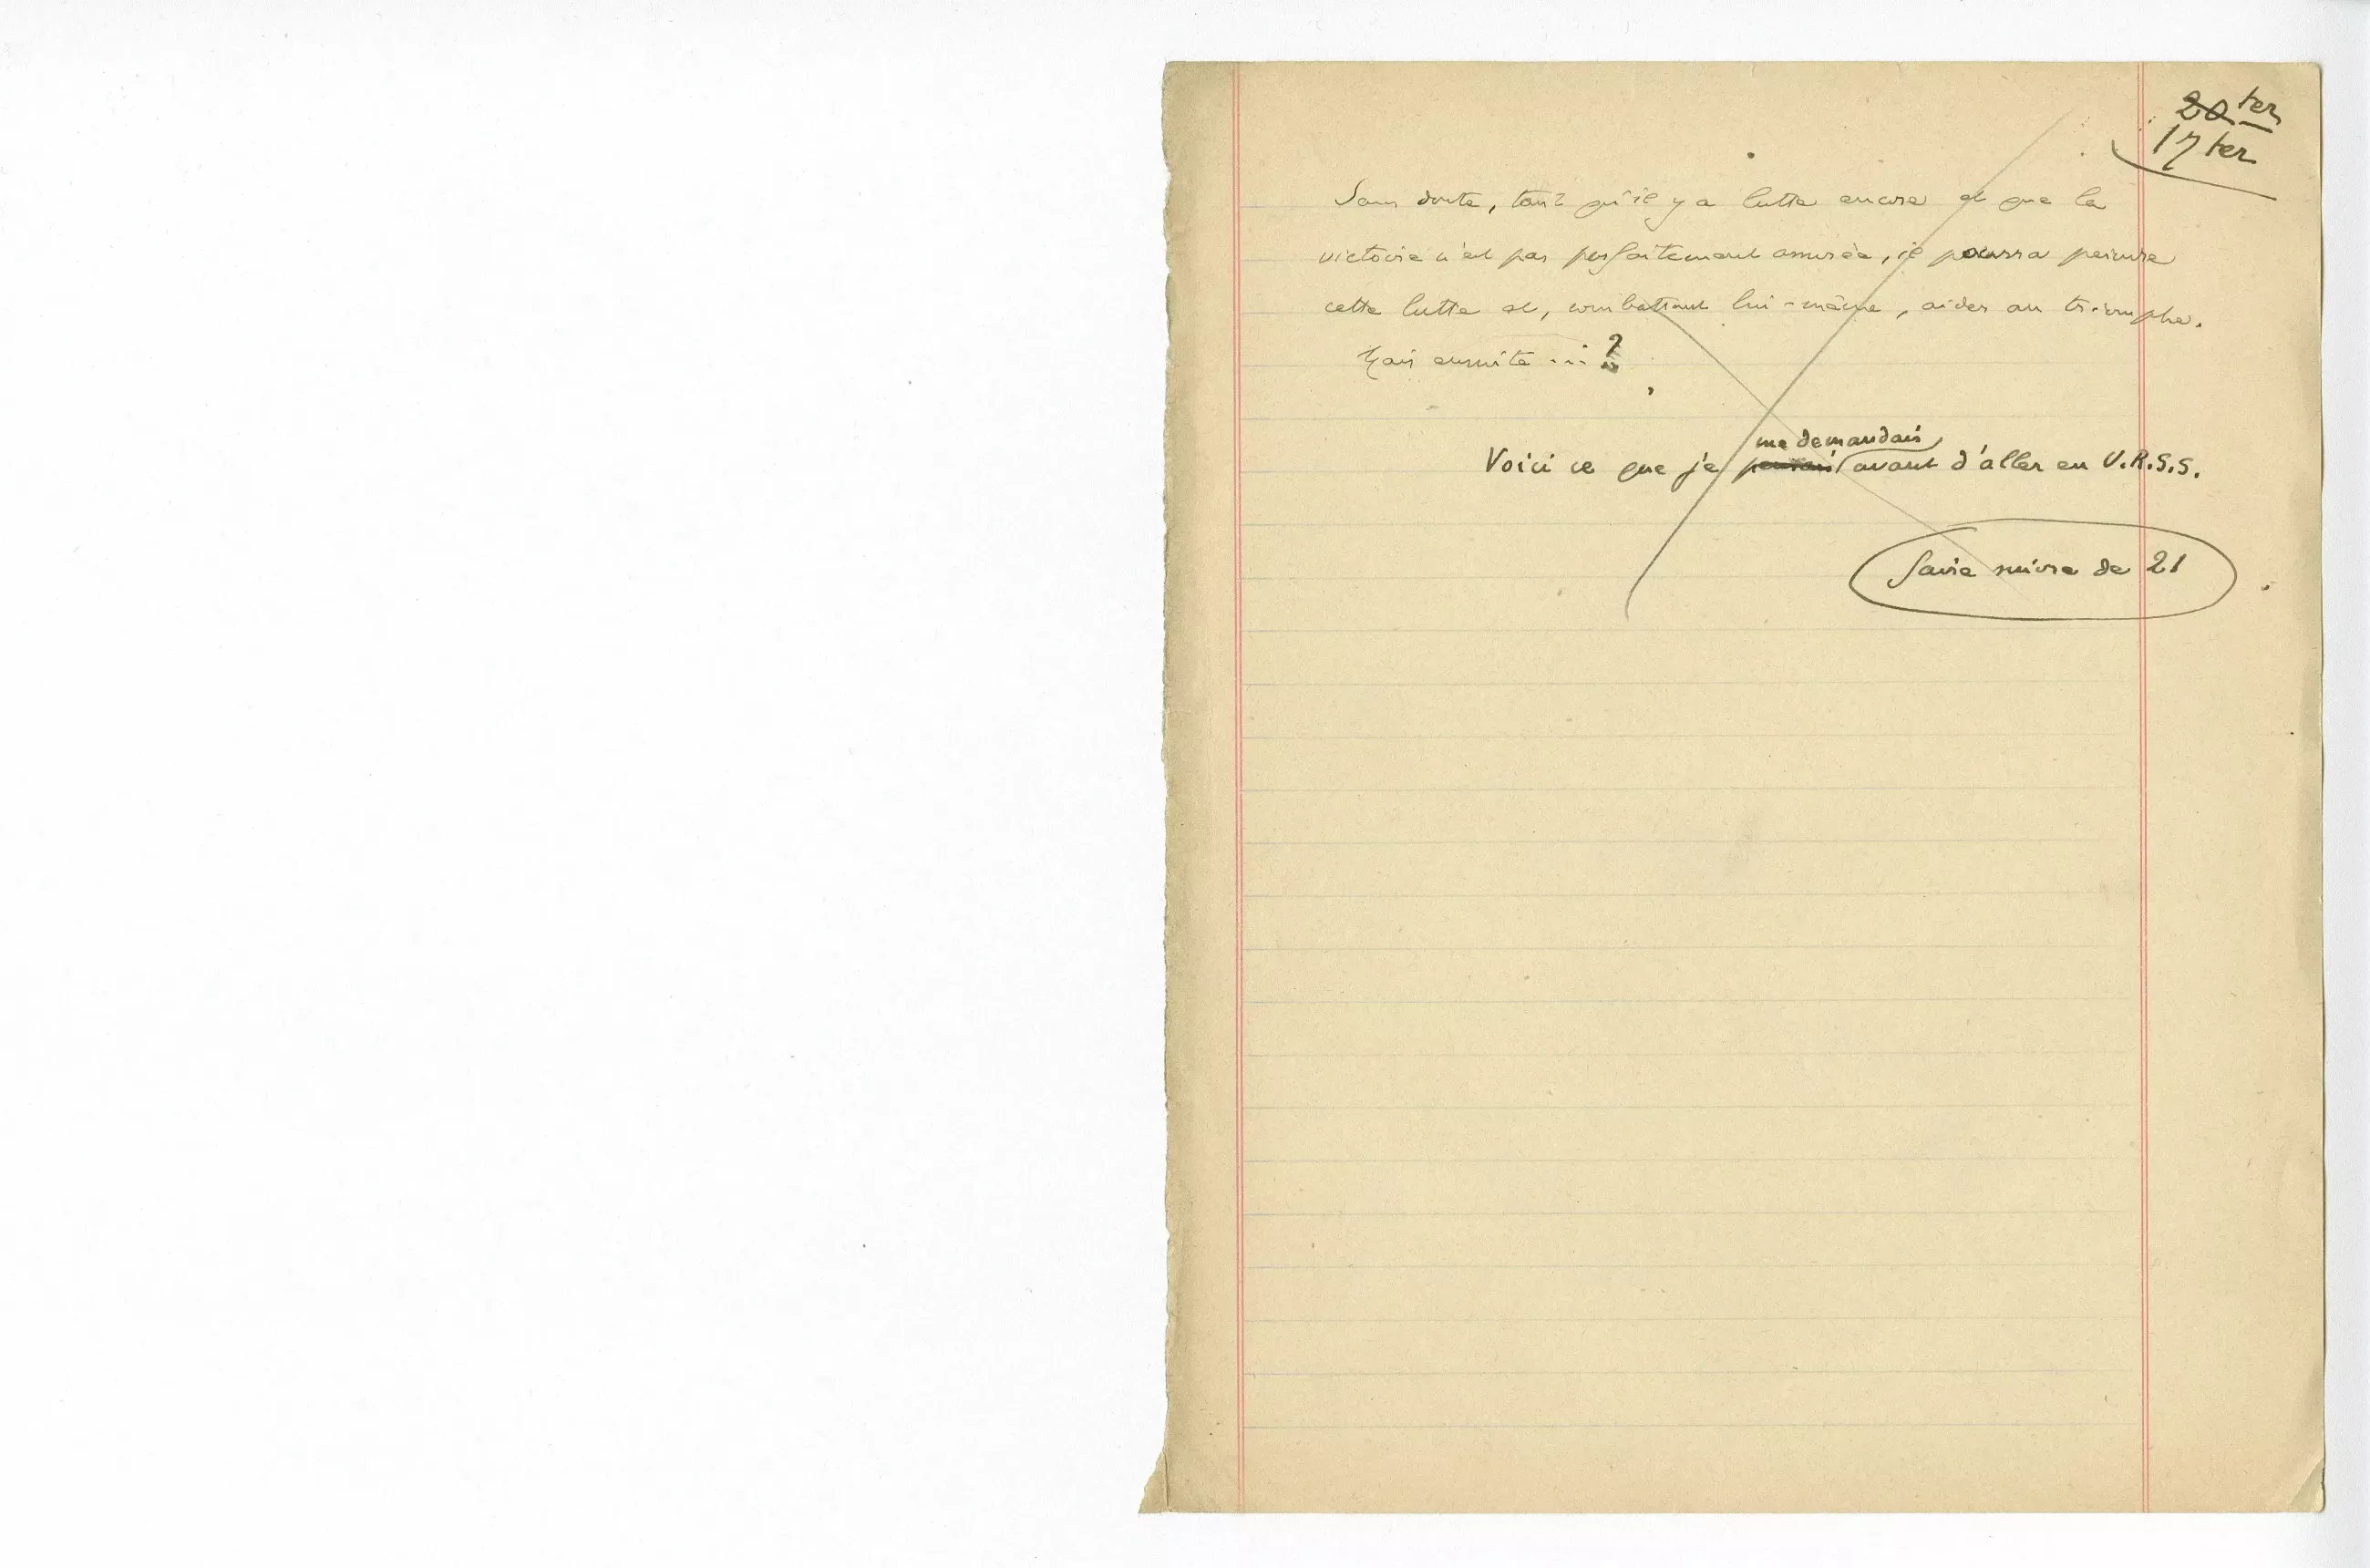 20 ter
17 ter
Sans doute, tant qu'il y a lutte encore et que la
victoire n'est pas parfaitement assurée, il pourra peindre
cette lutte et, combattant lui-même, aider au triomphe.
Mais ensuite ... ?
me demandais
Voici ce que je pensais avant d'aller en U.R.S.S.
faire suivre de 21